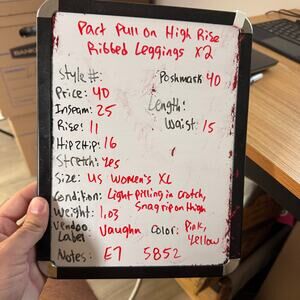 Pact Pull on High Rise
Ribbed Leggings x2
Style #:
Poshmark 40
Price: 40
Length:
Inseam: 25
Waist: 15
Rise: 11
Hip2Hip: 16
Stretch: yes
Size: US Women's XL
Condition: Light pilling in crotch,
Snag rip on thigh
Weight: 1.03
Color: Pink,
Yellow
Vendoo
Label Vaughn
Notes: E7 5852